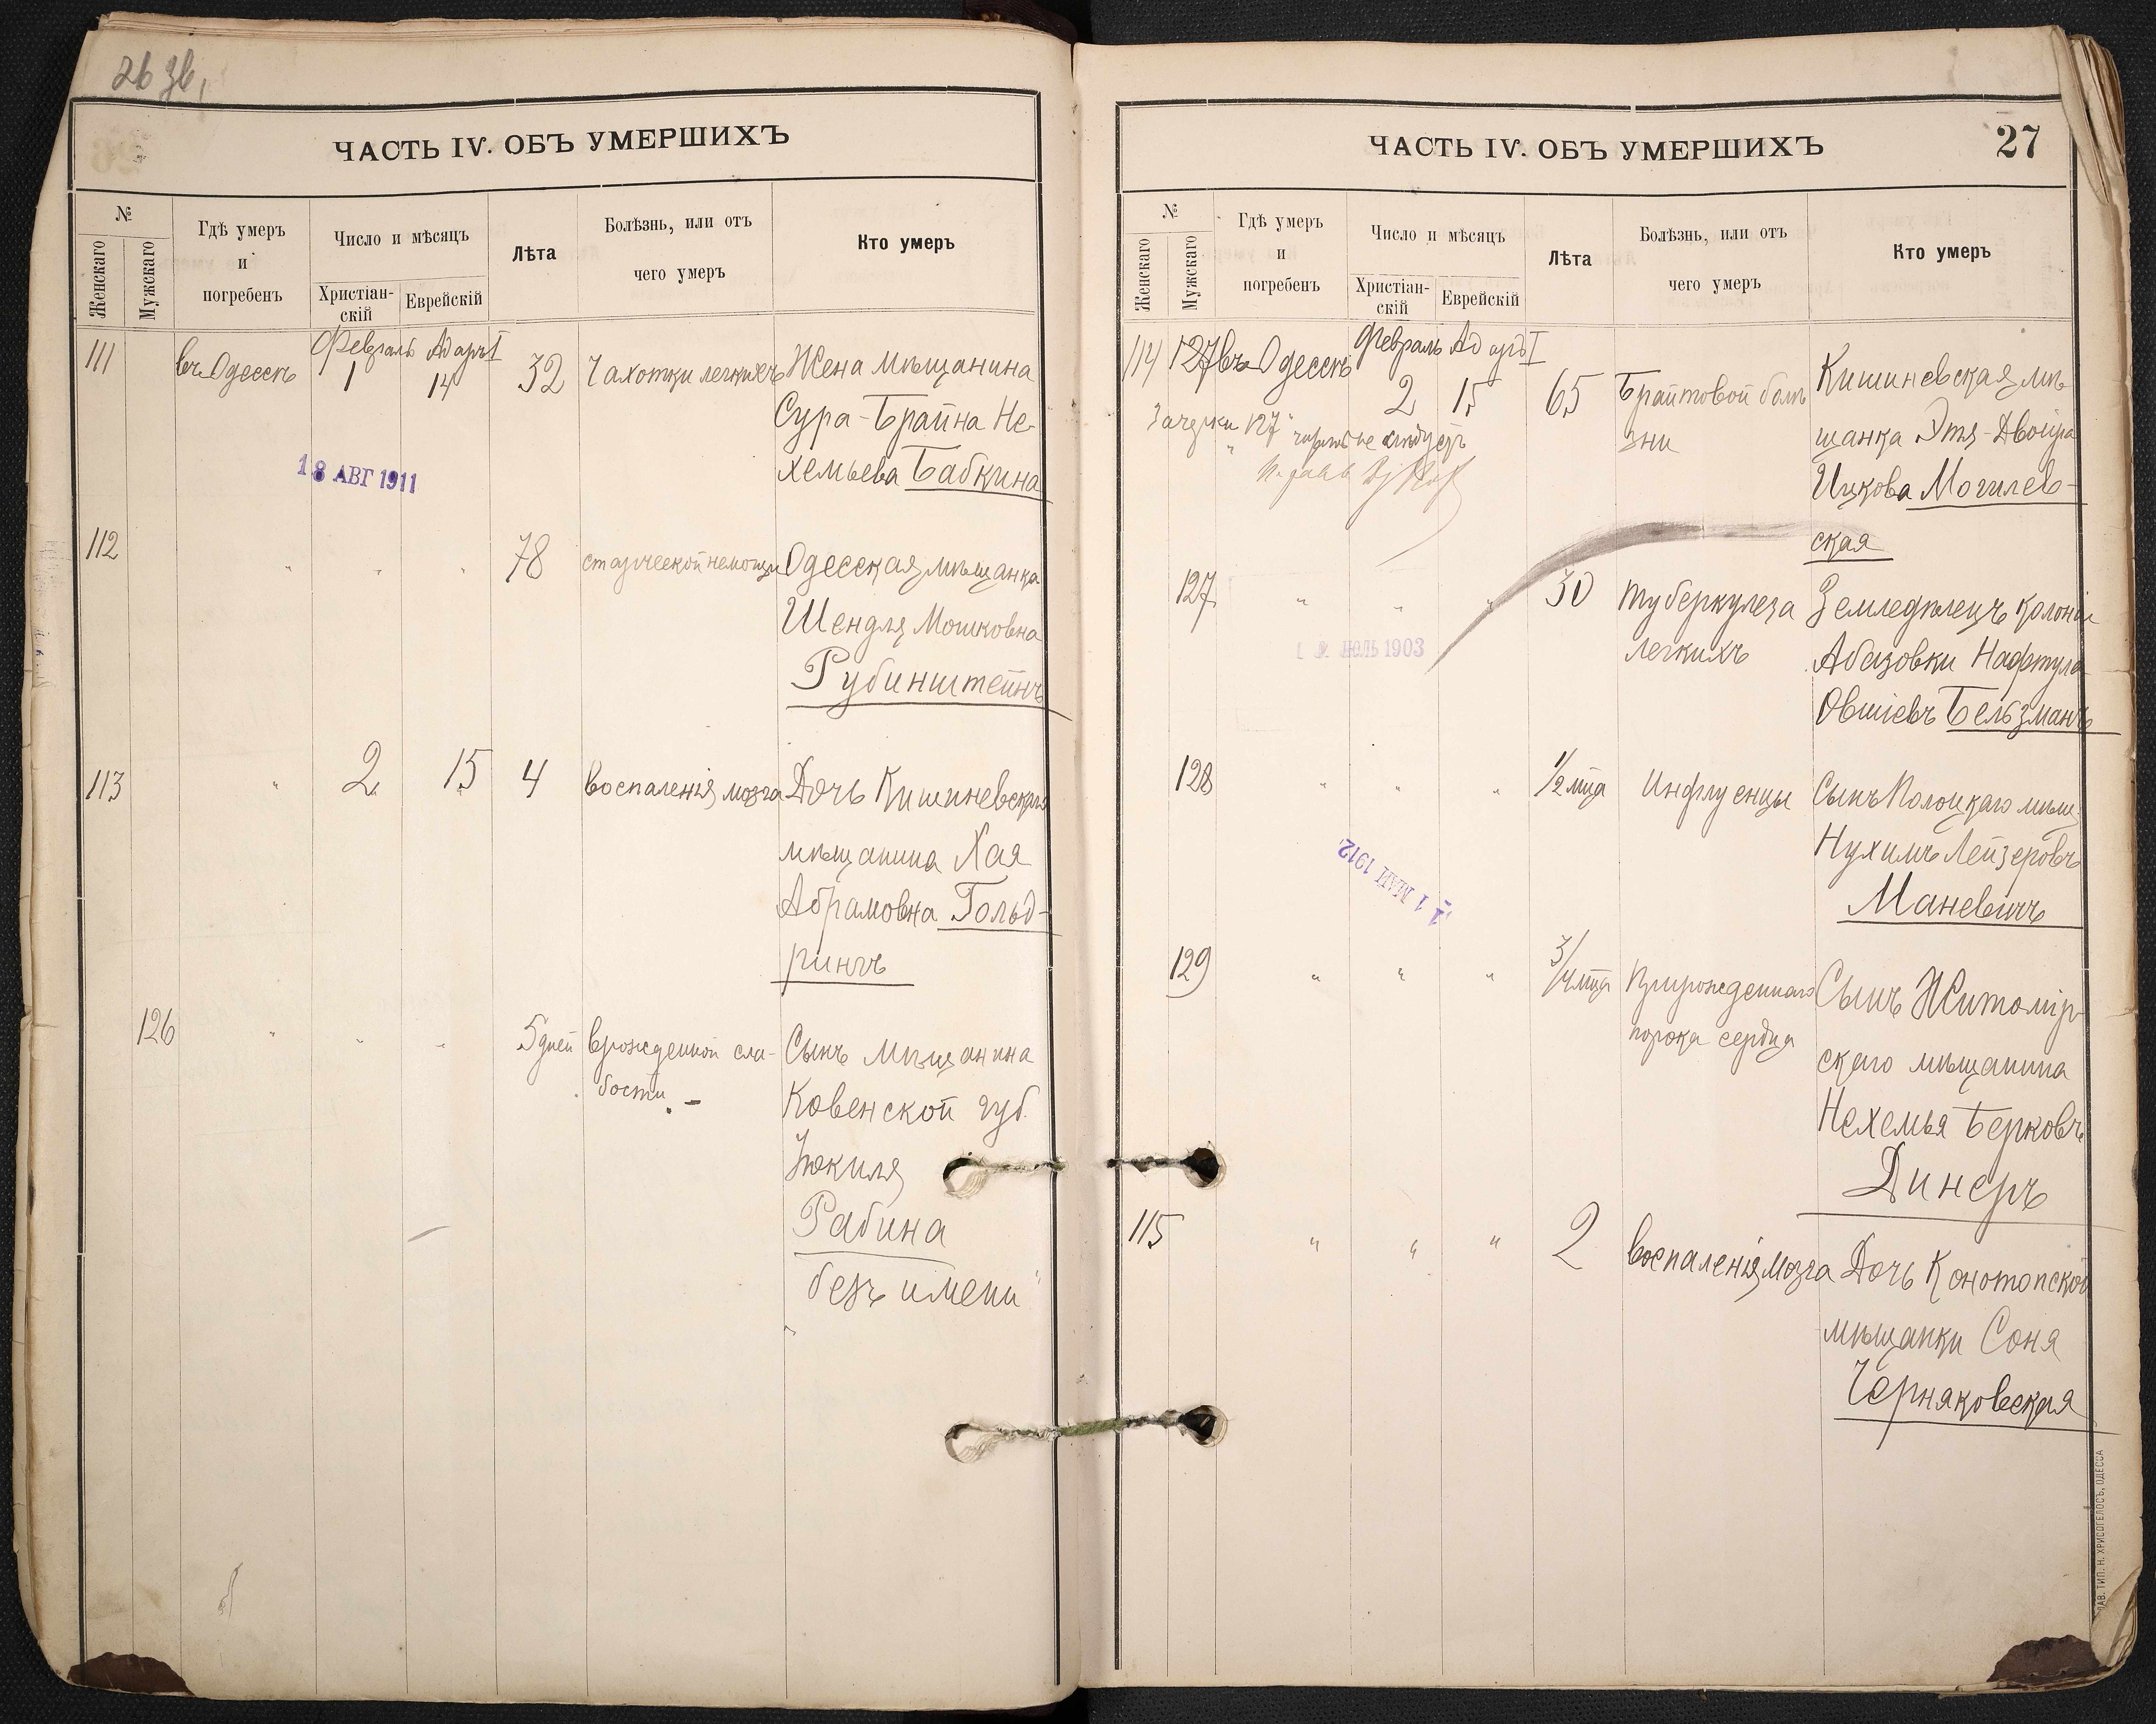 ЧАСТЬ IV. ОБЪ УМЕРШИХЪ
№
Женскаго
Мужскаго
Гдѣ умеръ
и
погребенъ
Число и мѣсяцъ
Христіан-
скій
Еврейскій
Лѣта
Болѣзнь, или отъ
чего умеръ
Кто умеръ
111 въ Одессѣ Февраль 1 Адаръ I 14 32 Чахотки легкихъ Жена мѣщанина
Сура-Брайна Не-
хемьева Бабкина
18 АВГ 1911
112 " " " 78 старческой немощи Одесская мѣщанка
Шендля Мошковна
Рубинштейнъ
113 " 2 15 4 воспаленія мозга Дочь Кишиневскаго
мѣщанина Хая
Абрамовна Гольд-
рингъ
126 " " " 5 дней врожденной сла-
бости. - Сынъ мѣщанина
Ковенской губ.
Юкиля
Рабина
"безъ имени"
ЧАСТЬ IV. ОБЪ УМЕРШИХЪ
27
№
Женскаго
Мужскаго
Гдѣ умеръ
и
погребенъ
Число и мѣсяцъ
Христіан-
скій
Еврейскій
Лѣта
Болѣзнь, или отъ
чего умеръ
Кто умеръ
114 127 въ Одессѣ Февраль 2 Адаръ I 15 65 Брайтовой болѣ-
зни Кишиневская мѣ-
щанка Этя-Двойра
Ицкова Могилев-
ская
"127" не слѣдуетъ
127 " " " 30 туберкулеза
легкихъ Земледѣлецъ колоніи
Абазовки Нафтула
Овшіевъ Бельзманъ
ІЮЛЬ 1903
128 " " " 1/2 мца Инфлуенцы Сынъ Полоцкаго мѣщ.
Нухимъ Лейзеровъ
Маневичъ
11 МАЙ 1912
129 " " " 3/4 мца Прирожденнаго
порока сердца Сынъ Житомір-
скаго мѣщанина
Нехемья Берковъ
Динеръ
115 " " " 2 воспаленія мозга Дочь Конотопской
мѣщанки Соня
Черняковская
ТИП. Н. ХРИСОГЕЛОСЪ, ОДЕССА